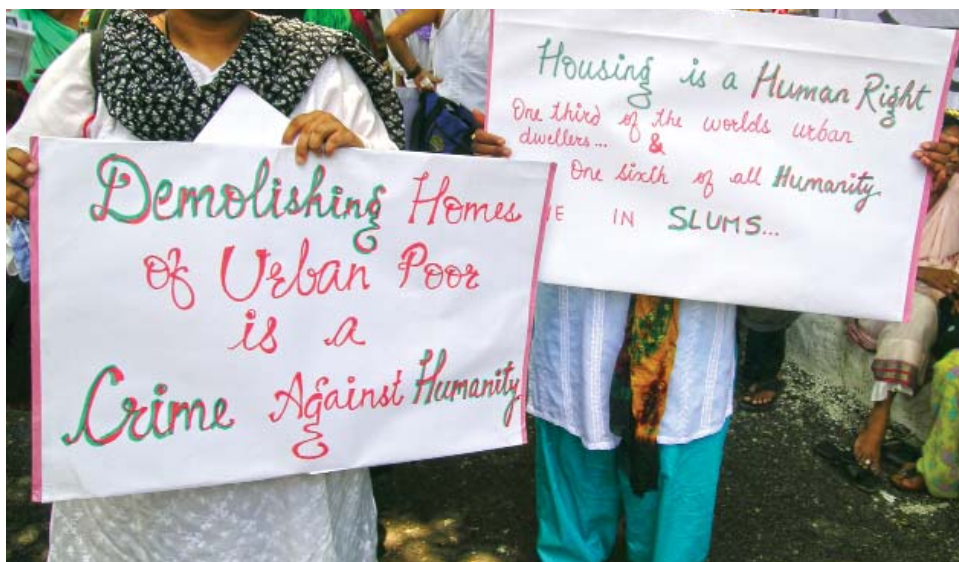 Demolishing Homes
of Urban Poor
is a
Crime Against Humanity
Housing is a Human Right
One third of the worlds urban
dwellers... &
One sixth of all Humanity
IN SLUMS...